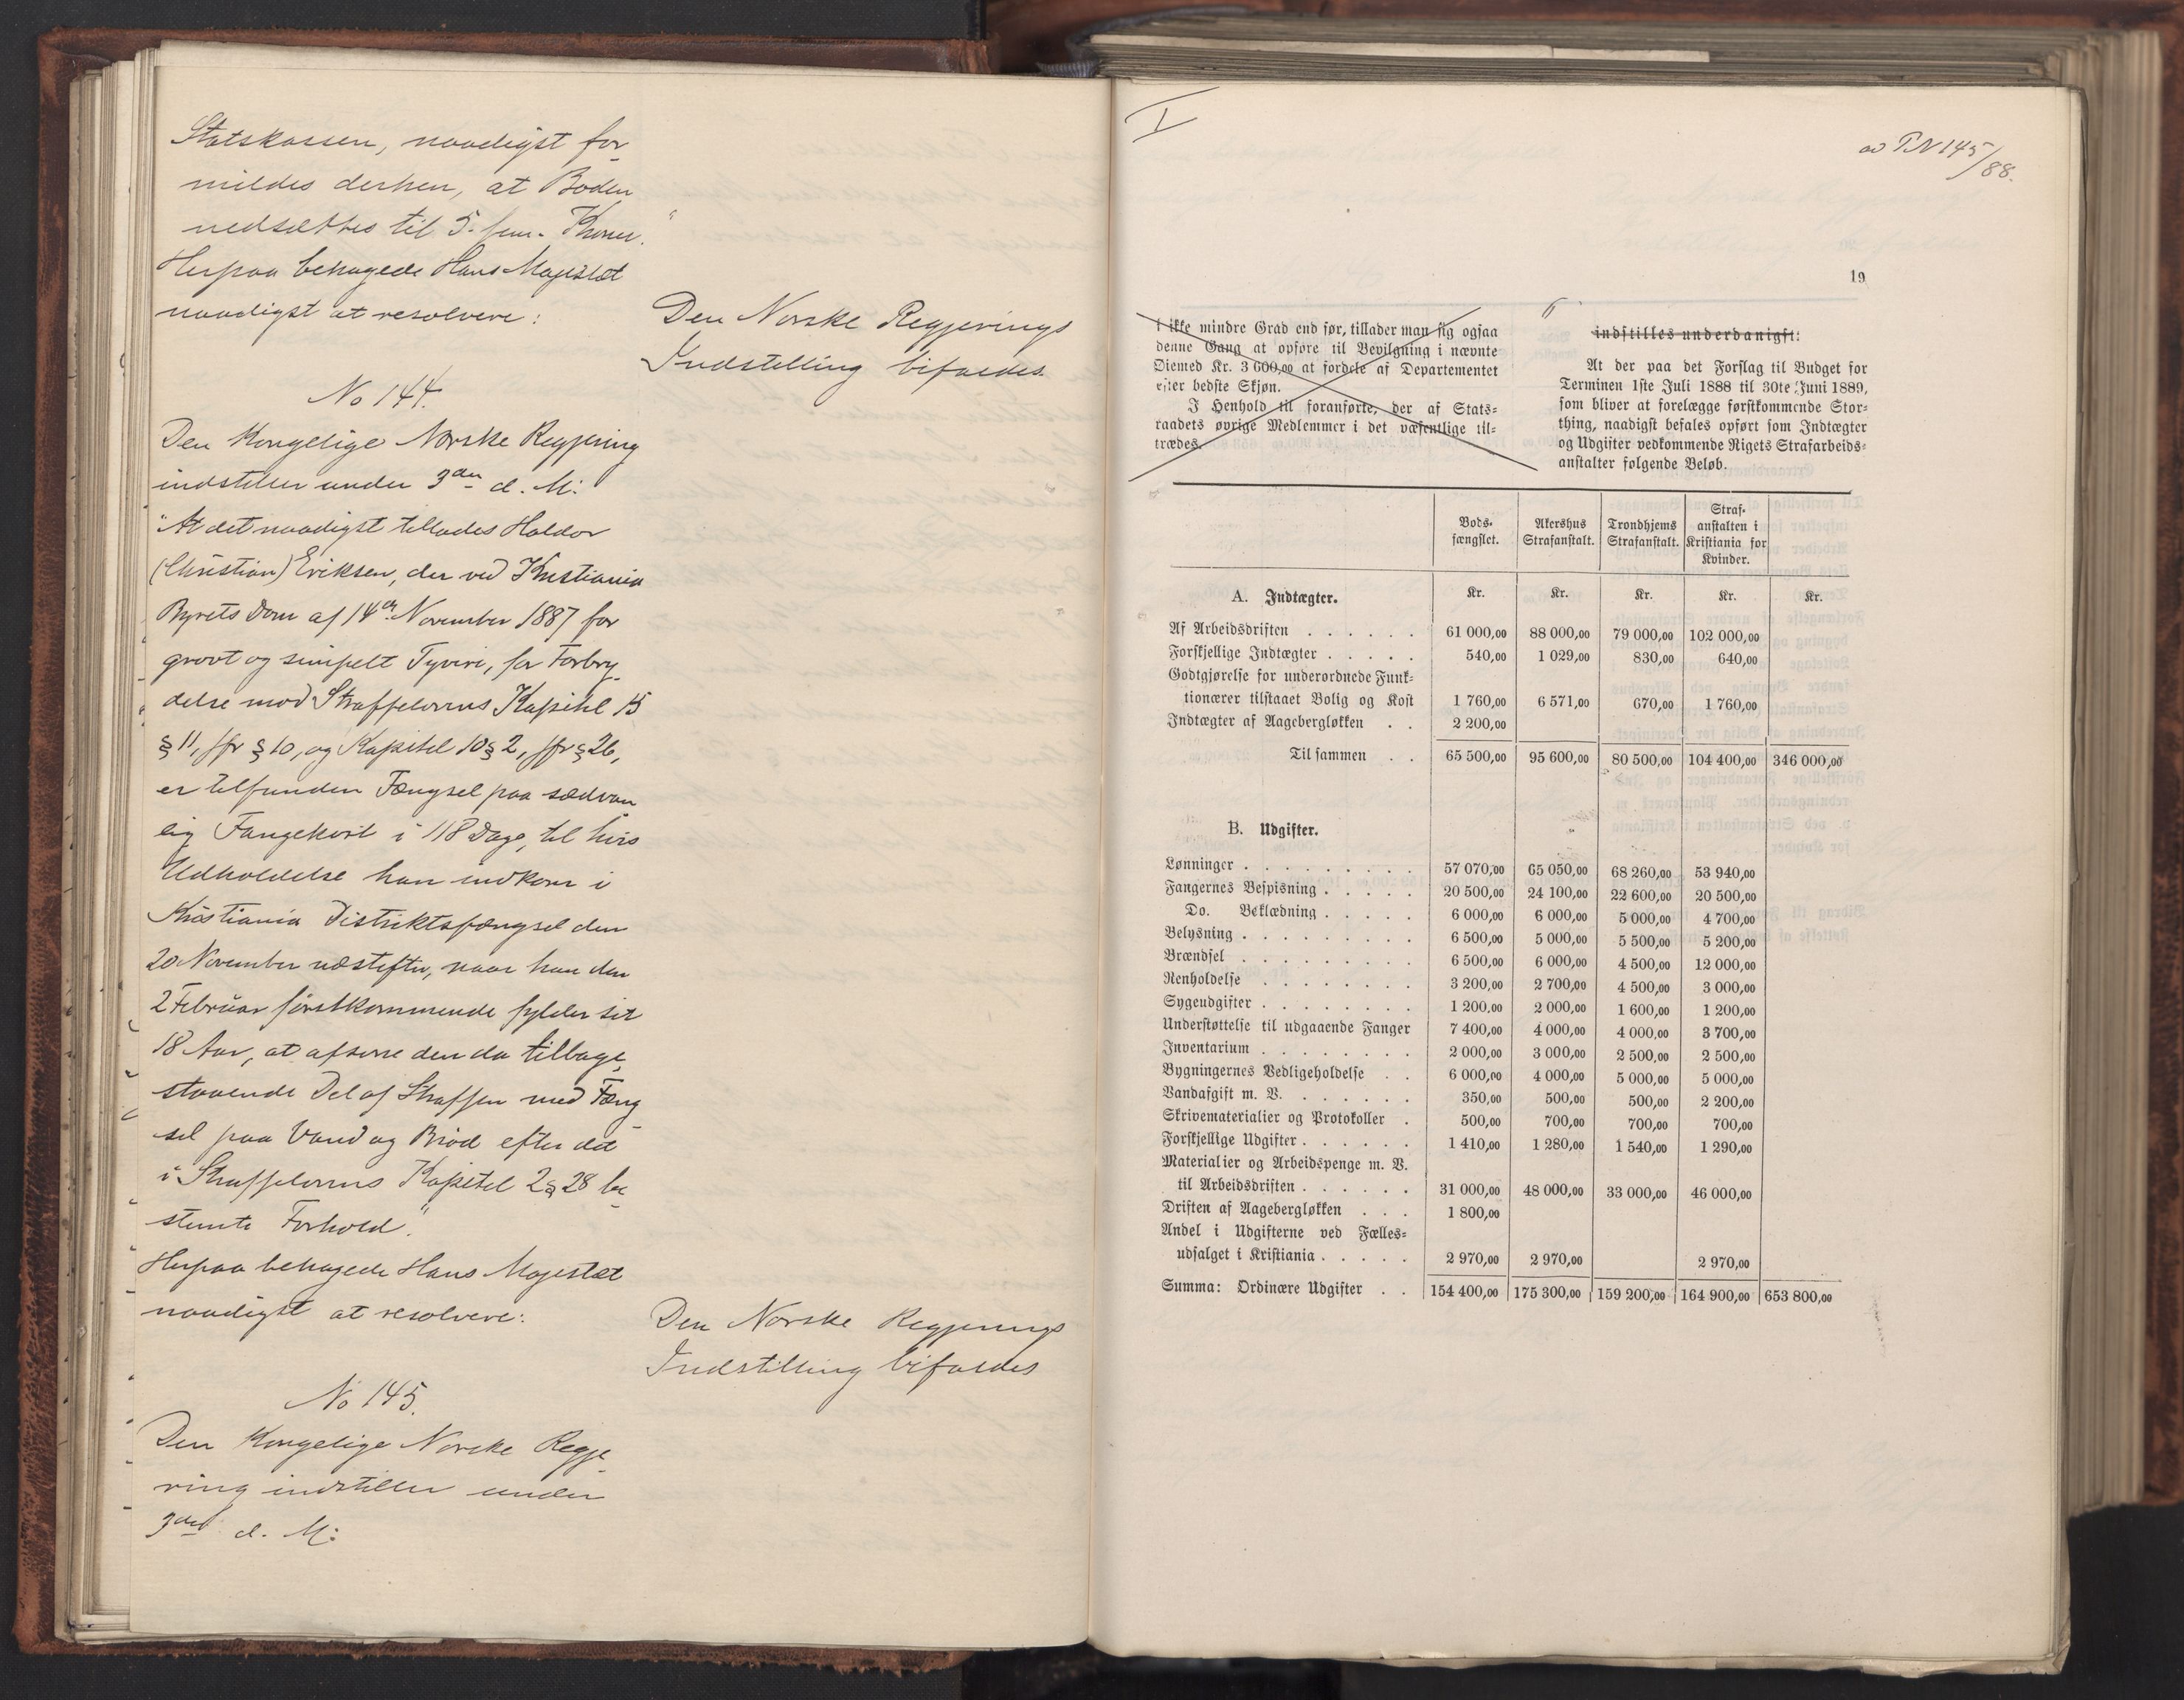 Statskassen, naadigst for-
mildes derhen, at Boden
nedsættes til 5 - fem - Kroner."
Herpaa behagede Hans Majestæt
naadigst at resolvere:
Den Norske Regjerings
Indstilling bifaldes.
No 144.
Den Kongelige Norske Regjering
indstiller under 3die d. M:
"At det naadigst tillades Haldor
(Christian) Eriksen, der ved Kristiania
Byrets Dom af 14de November 1887 for
grovt og simpelt Tyveri, for Forbry-
delse mod Straffelovens Kapitel 15
§ 11, jfr § 10, og Kapitel 10 § 2, jfr § 26,
er tilfunden Fængsel paa sædvan-
lig Fangekost i 118 Dage, til hvis
Udholdelse han indkom i
Kristiania Distriktsfængsel den
20 November næstefter, naar han den
2 Februar førstkommende fylder sit
18 Aar, at afsone den da tilbage-
staaende Del af Straffen med Fæng-
sel paa Vand og Brød efter det
i Straffelovens Kapitel 2 § 28 be-
stemte Forhold."
Herpaa behagede Hans Majestæt
naadigst at resolvere:
Den Norske Regjerings
Indstilling bifaldes
No 145.
Den Kongelige Norske Regje-
ring indstiller under
3die d. M:
ad P.N 145/88.
19
i ikke mindre Grad end før, tillader man sig ogsaa
denne Gang at opføre til Bevilgning i nævnte
Øiemed Kr. 3 600,00 at fordele af Departementet
efter bedste Skjøn.
I Henhold til foranførte, der af Stats-
raadets øvrige Medlemmer i det væsentlige til-
trædes,
indstilles underdanigst:
At der paa det Forslag til Budget for
Terminen 1ste Juli 1888 til 30te Juni 1889,
som bliver at forelægge førstkommende Stor-
thing, naadigst befales opført som Indtægter
og Udgifter vedkommende Rigets Strafarbeids-
anstalter følgende Beløb.
Bods-fængslet. Akershus Strafanstalt. Trondhjems Strafanstalt. Straf-anstalten i Kristiania for Kvinder.
A. Indtægter. Kr. Kr. Kr. Kr. Kr.
Af Arbeidsdriften . . . . . . 61 000,00 88 000,00 79 000,00 102 000,00
Forskjellige Indtægter . . . . . 540,00 1 029,00 830,00 640,00
Godtgjørelse for underordnede Funk-
tionærer tilstaaet Bolig og Kost 1 760,00 6 571,00 670,00 1 760,00
Indtægter af Aagebergløkken . . 2 200,00
Tilsammen . . 65 500,00 95 600,00 80 500,00 104 400,00 346 000,00
B. Udgifter.
Lønninger . . . . . . . . . 57 070,00 65 050,00 68 260,00 53 940,00
Fangernes Bespisning . . . . . 20 500,00 24 100,00 22 600,00 20 500,00
Do. Beklædning . . . . . 6 000,00 6 000,00 5 000,00 4 700,00
Belysning . . . . . . . . . 6 500,00 5 000,00 5 500,00 5 200,00
Brændsel . . . . . . . . . 6 500,00 6 000,00 4 500,00 12 000,00
Renholdelse . . . . . . . . 3 200,00 2 700,00 4 500,00 3 000,00
Sygeudgifter . . . . . . . . 1 200,00 2 000,00 1 600,00 1 200,00
Understøttelse til udgaaende Fanger 7 400,00 4 000,00 4 000,00 3 700,00
Inventarium . . . . . . . . 2 000,00 3 000,00 2 500,00 2 500,00
Bygningernes Vedligeholdelse . . 6 000,00 4 000,00 5 000,00 5 000,00
Vandafgift m. V. . . . . . . 350,00 500,00 500,00 2 200,00
Skrivematerialier og Protokoller . 500,00 700,00 700,00 700,00
Forskjellige Udgifter . . . . . . 1 410,00 1 280,00 1 540,00 1 290,00
Materialier og Arbeidspenge m. V.
til Arbeidsdriften . . . . . . 31 000,00 48 000,00 33 000,00 46 000,00
Driften af Aagebergløkken . . . 1 800,00
Andel i Udgifterne ved Fælles-
udsalget i Kristiania . . . . . 2 970,00 2 970,00 2 970,00
Summa: Ordinære Udgifter . . 154 400,00 175 300,00 159 200,00 164 900,00 653 800,00